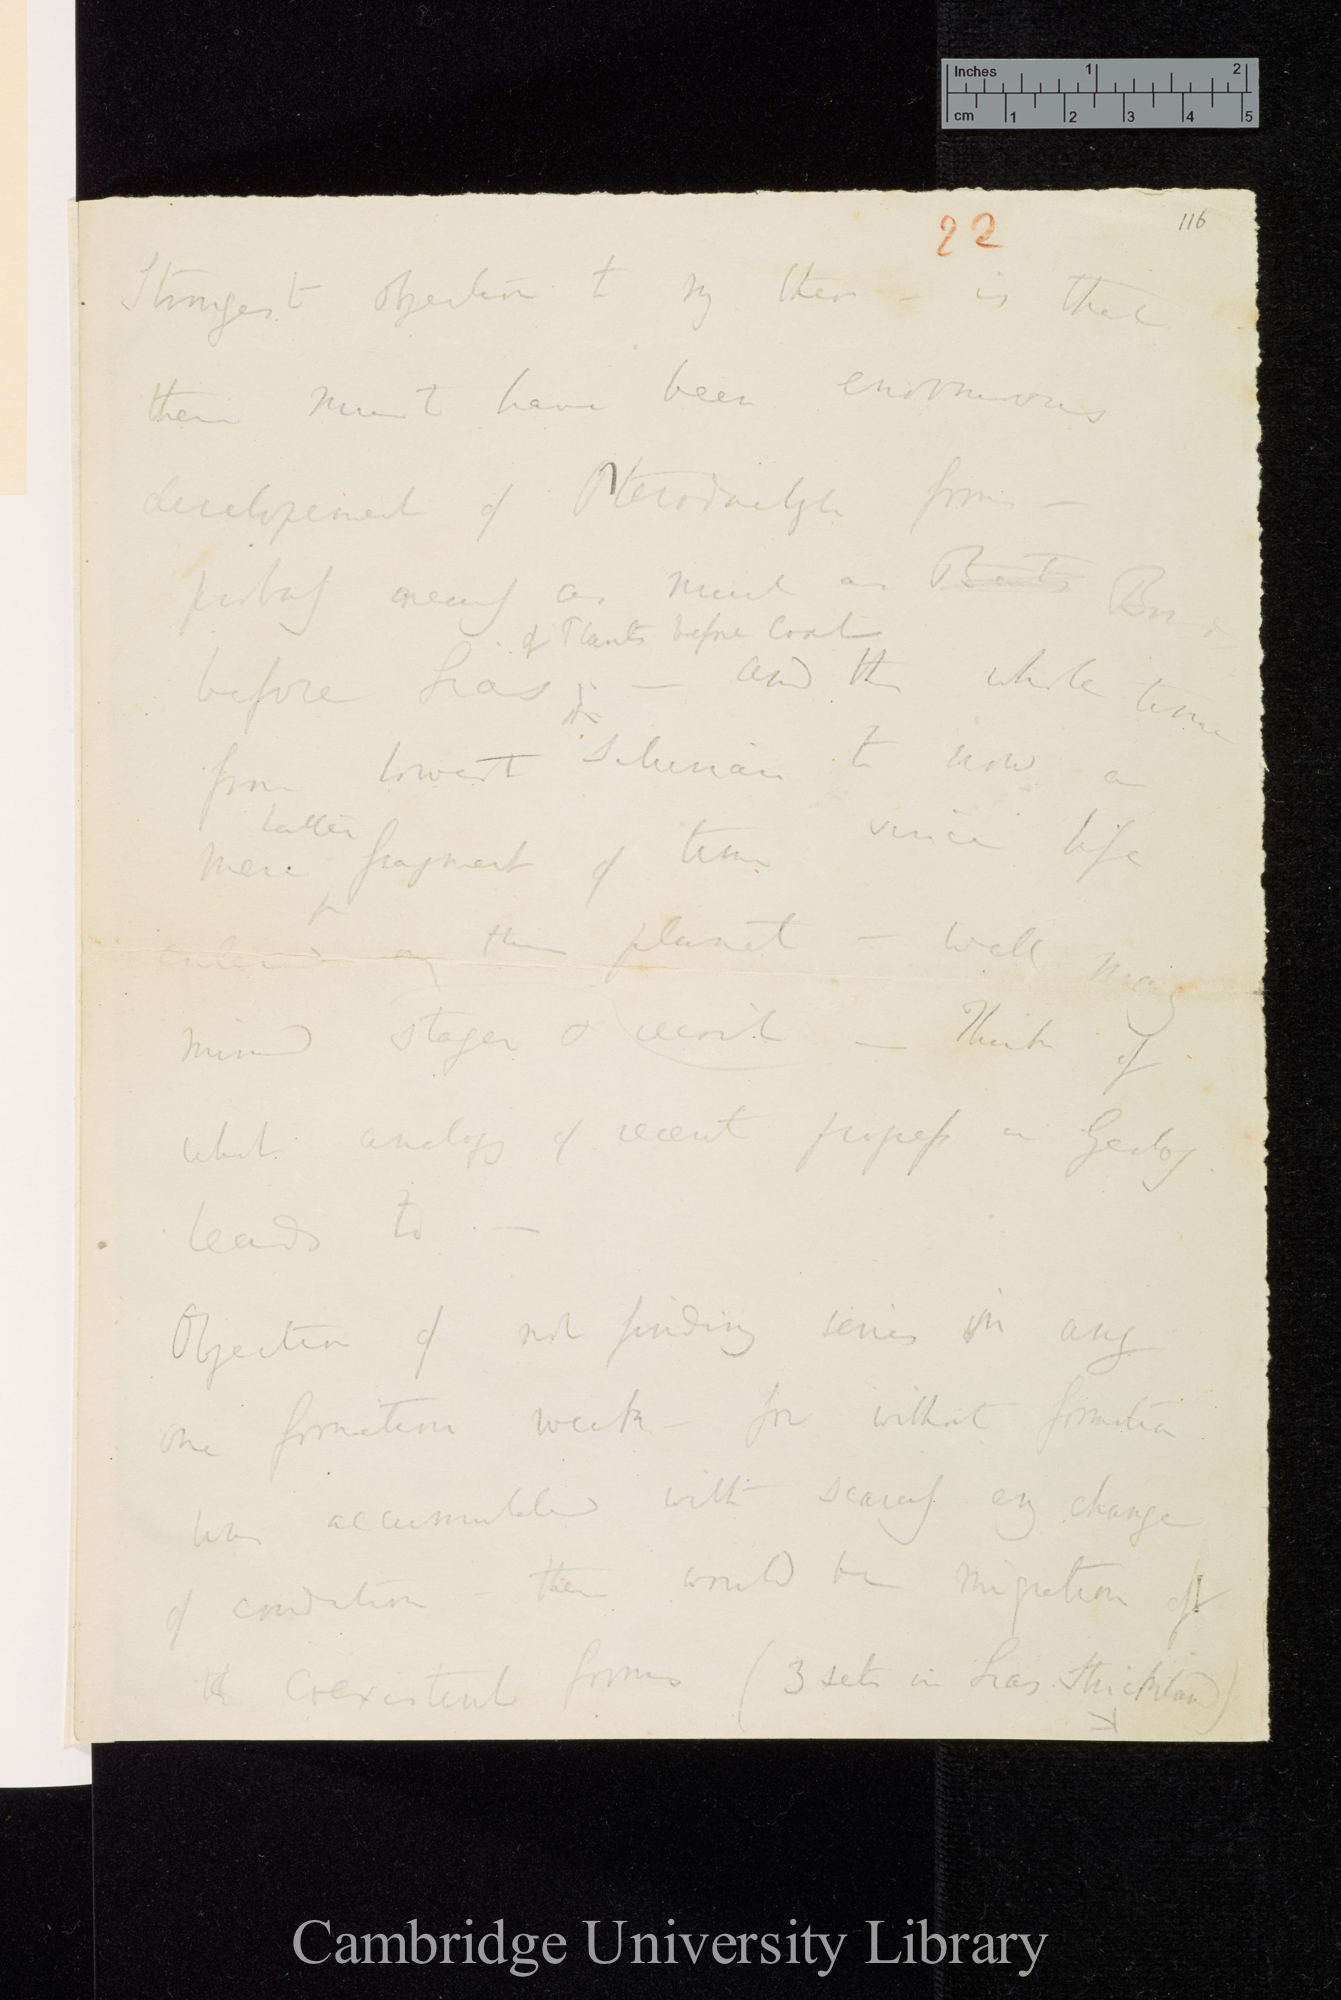 Inches 1 2
cm 1 2 3 4 5
22
116
Strongest objection to my theory — is that
there must have been enormous
developement of Pterodactyle forms —
probably nearly as much as Bats Birds
of Plants before Coal
before Lias & — and the whole time
from lowest Silurian to now a
latter
mere fragment of time since life
entered on this planet — well may
mind stagger & recoil — Think of
what analogy of recent progress in Geology
leads to —
Objection of not finding series in any
one formation weak — for without formation
was accumulated with scarcely any change
of condition — there would be migration of
the coexistent forms (3 sets in Lias. Strickland)
Cambridge University Library